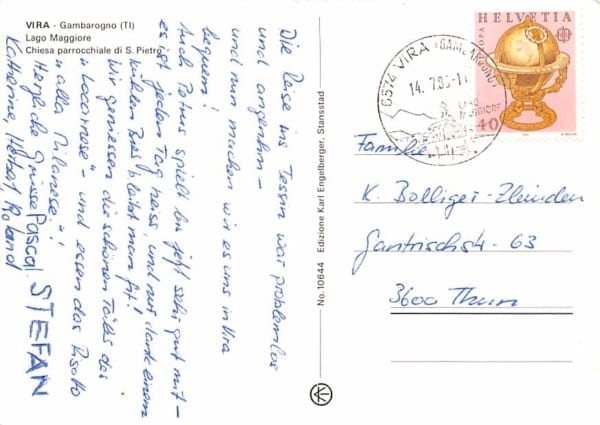 VIRA - Gambarogno (TI)
Lago Maggiore
Chiesa parrocchiale di S. Pietro
Die Reise ins Tessin war problemlos
und angenehm -
und nun machen wir es uns in Vira
bequem!
Auch Petrus spielt bis jetzt sehr gut mit -
es ist jeden Tag heiss und nur dank einem
kühlen Bad bleibt man fit!
Wir geniessen die schönen Täler des
"Locarnese" - und essen das Risotto
"alla Milanese"!
Herzliche Grüsse Pascal STEFAN
Katherine, Herbert, Roland
No. 10644 Edizione Karl Engelberger, Stansstad
6574 VIRA (GAMBAROGNO)
14.7.8
LAGO
MAGGIORE
HELVETIA
EUROPA
CEPT
40
Familie
K. Bolliger-Zbinden
Gantrischstr. 63
3600 Thun